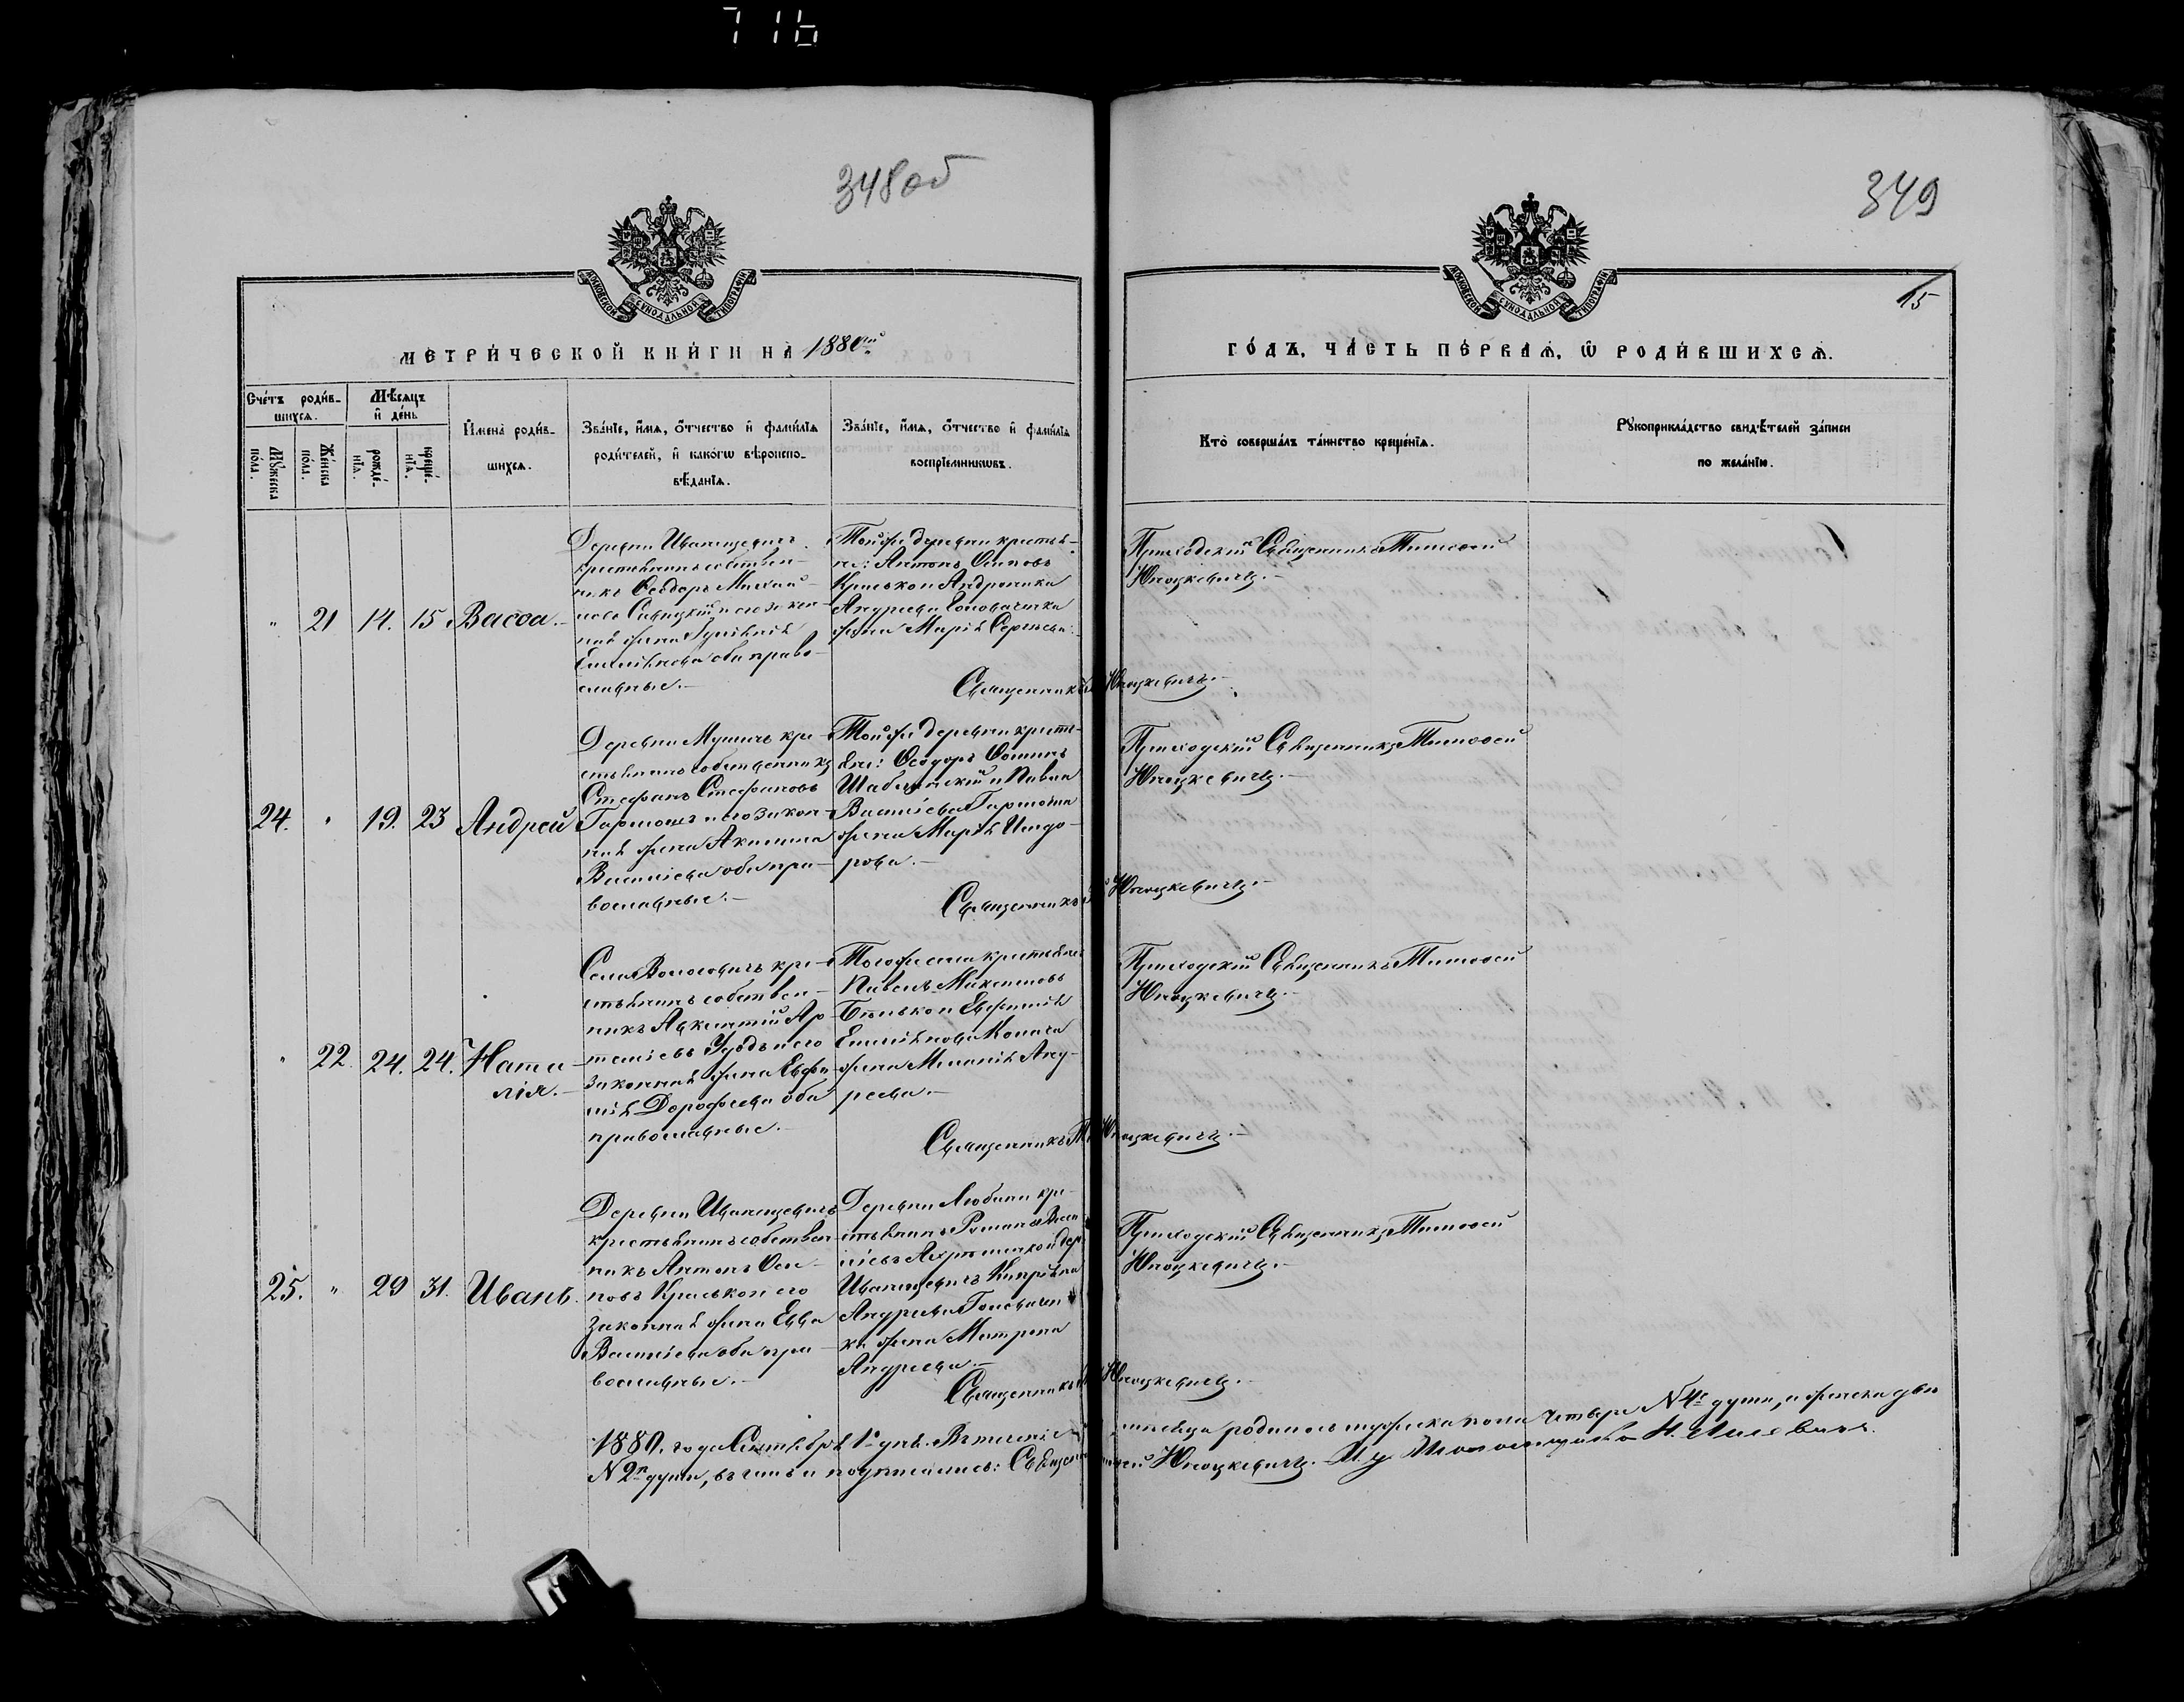 716
348 об
349
15
МОСКОВСКОЙ СѴНОДАЛЬНОЙ ТИПОГРАФІИ
МОСКОВСКОЙ СѴНОДАЛЬНОЙ ТИПОГРАФІИ
МЕТРИ́ЧЕСКОЙ КНИ́ГИ НА 1880й
ГО́ДЪ, ЧА́СТЬ ПЕ́РВАѦ, Ѡ РОДИ́ВШИХСѦ.
Сче́тъ роди́в-
шихсѧ.
Мꙋ́жеска по́ла.
Же́нска по́ла.
Мѣ́сѧцъ
и҆ де́нь
рожде́-
нїѧ.
креще́-
нїѧ.
И҆мена̀ роди́в-
шихсѧ.
Зва́нїе, и҆́мѧ, ѻ҆́тчество и҆ фами́лїѧ
роди́телей, и҆ како́гѡ вѣроиспо-
вѣ́данїѧ.
Зва́нїе, и҆́мѧ, ѻ҆́тчество и҆ фами́лїѧ
воспрїе́мникѡвъ.
Кто̀ соверша́лъ та́инство креще́нїѧ.
Рꙋкоприкла́дство свидѣ́телей за́писи
по жела́нїю.
" 21 14. 15 Васса.
Деревни Иванищевичъ
крестьянинъ собствен-
никъ Ѳеодоръ Михай-
ловъ Савицкій и его закон-
ная жена
Емиліанова оба право-
славные.
Тойже деревни крестья-
не: Антонъ Осиповъ
Крисько и Андроника
Андреева Головачика
жена Марія Сергѣева.
Приходскій Священникъ Тимоѳей
Юноцкевичъ.
Священникъ Юноцкевичъ.
24. " 19. 23 Андрей
Деревни Мутичъ кре-
стьянинъ собственникъ
Стефанъ Стефановъ
Гармошъ и его закон-
ная жена Акилина
Василіева оба пра-
вославные.
Тойже деревни кресть-
яне: Ѳеодоръ Ѳоминъ
и Павла
Василіева Гармоша
жена Марія Исидо-
рова.
Приходскій Священникъ Тимоѳей
Юноцкевичъ.
Священникъ Юноцкевичъ.
" 22. 24. 24. Ната-
лія.
Села Вологовичъ кре-
стьянинъ собствен-
никъ Авксентій Ар-
теміевъ и его
законная жена Евфи-
мія Дорофеева оба
православные.
Тогоже села крестьяне
Павелъ Максимовъ
и Евфимія
Емиліанова Копача
жена Меланія Анд-
реева.
Приходскій Священникъ Тимоѳей
Юноцкевичъ.
Священникъ Т. Юноцкевичъ.
25. " 29 31. Иванъ.
Деревни Иванищевичъ
крестьянинъ собствен-
никъ Антонъ Оси-
повъ Крисько и его
законная жена Евва
Василіева оба пра-
вославные.
Деревни Любани кре-
стьянинъ Романъ Васи-
ліевъ и дер.
Иванищевичъ Кипріана
Андреева Головачи-
ка жена Матрона
Андреева.
Приходскій Священникъ Тимоѳей
Юноцкевичъ.
Священникъ Юноцкевичъ.
1880. года Сентября 1о дня. Въ теченіе мѣсяца родилось мужеска пола четыре №4е души, а женска двѣ
№2ѣ души, въ чемъ и подписались: Священникъ Юноцкевичъ. И. д.